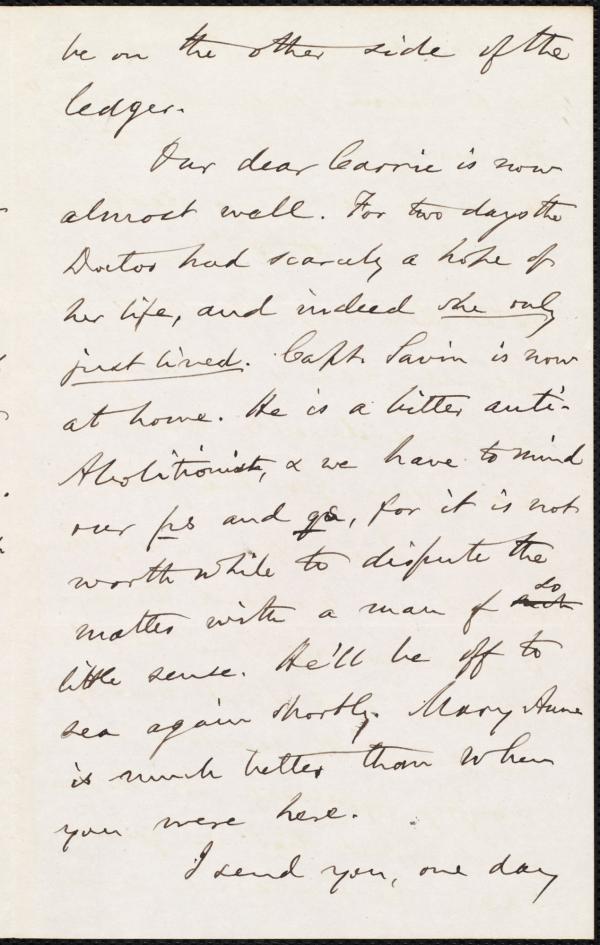 be on the other side of the
ledger.
Our dear Carrie is now
almost well. For two days the
Doctor had scarcely a hope of
her life, and indeed she only
just lived. Capt. Savin is now
at home. He is a bitter anti-
Abolitionist, & we have to mind
our ps and qs, for it is not
worth while to dispute the
matter with a man of so
little sense. He'll be off to
sea again shortly. Mary Anne
is much better than when
you were here.
I send you, one day